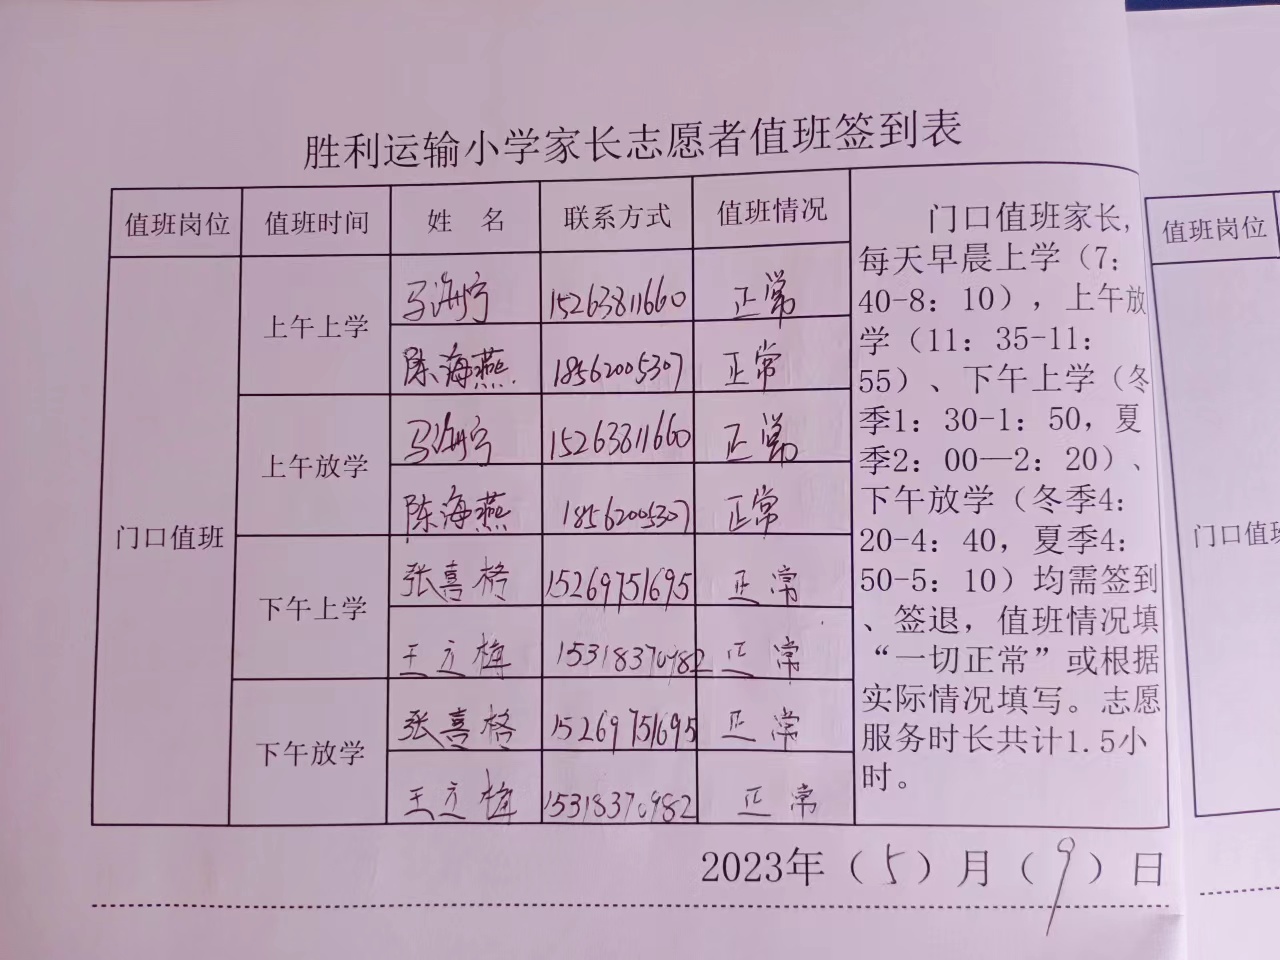 胜利运输小学家长志愿者值班签到表
值班岗位 值班时间 姓 名 联系方式 值班情况
门口值班
上午上学
马海宁 15263811660 正常
陈海燕 18562005307 正常
上午放学
马海宁 15263811660 正常
陈海燕 18562005307 正常
下午上学
张喜格 15269751695 正常
王立梅 15318370982 正常
下午放学
张喜格 15269751695 正常
王立梅 15318370982 正常
门口值班家长,
每天早晨上学（7:
40-8：10），上午放
学（11：35-11：
55）、下午上学（冬
季1：30-1：50，夏
季2：00—2：20）、
下午放学（冬季4：
20-4：40，夏季4：
50-5：10）均需签到
、签退，值班情况填
“一切正常”或根据
实际情况填写。志愿
服务时长共计1.5小
时。
2023年（5）月（9）日
值班岗位
门口值班